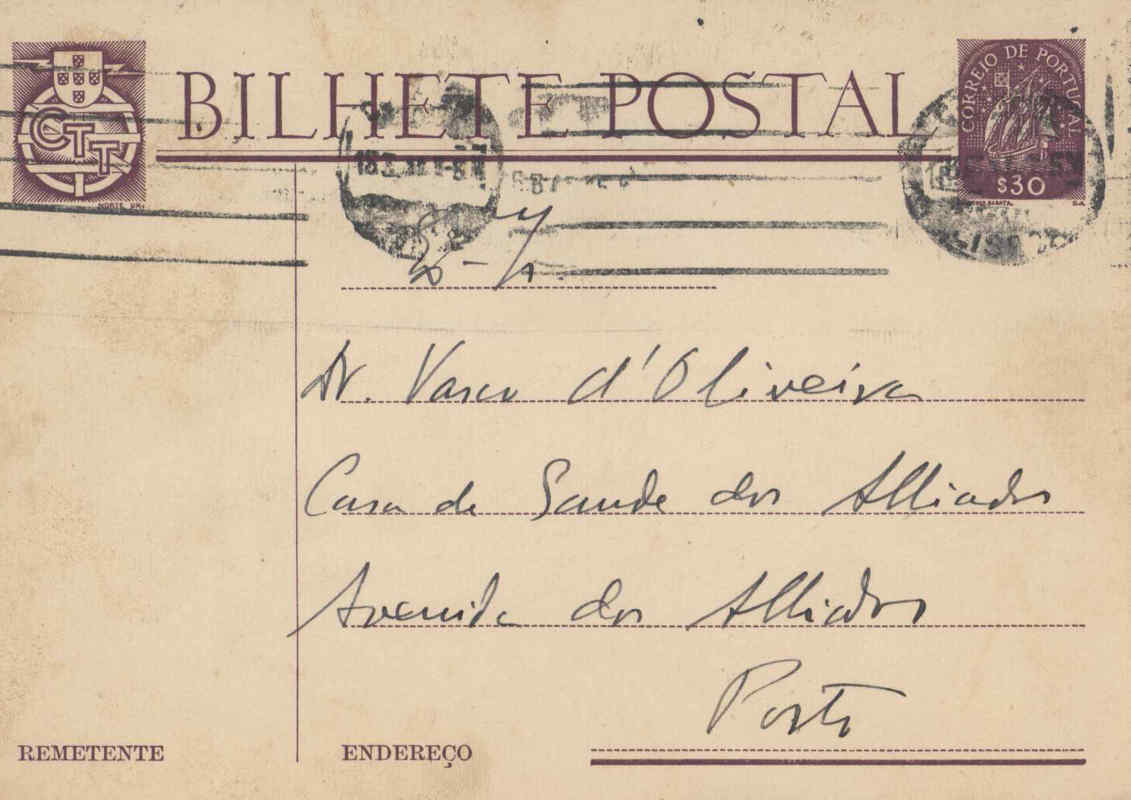 BILHETE POSTAL
CTT
CORREIO DE PORTUGAL
$30
Dr. Vasco d'Oliveira
Casa de Saude dos Alliados
Avenida dos Alliados
Porto
REMETENTE
ENDEREÇO